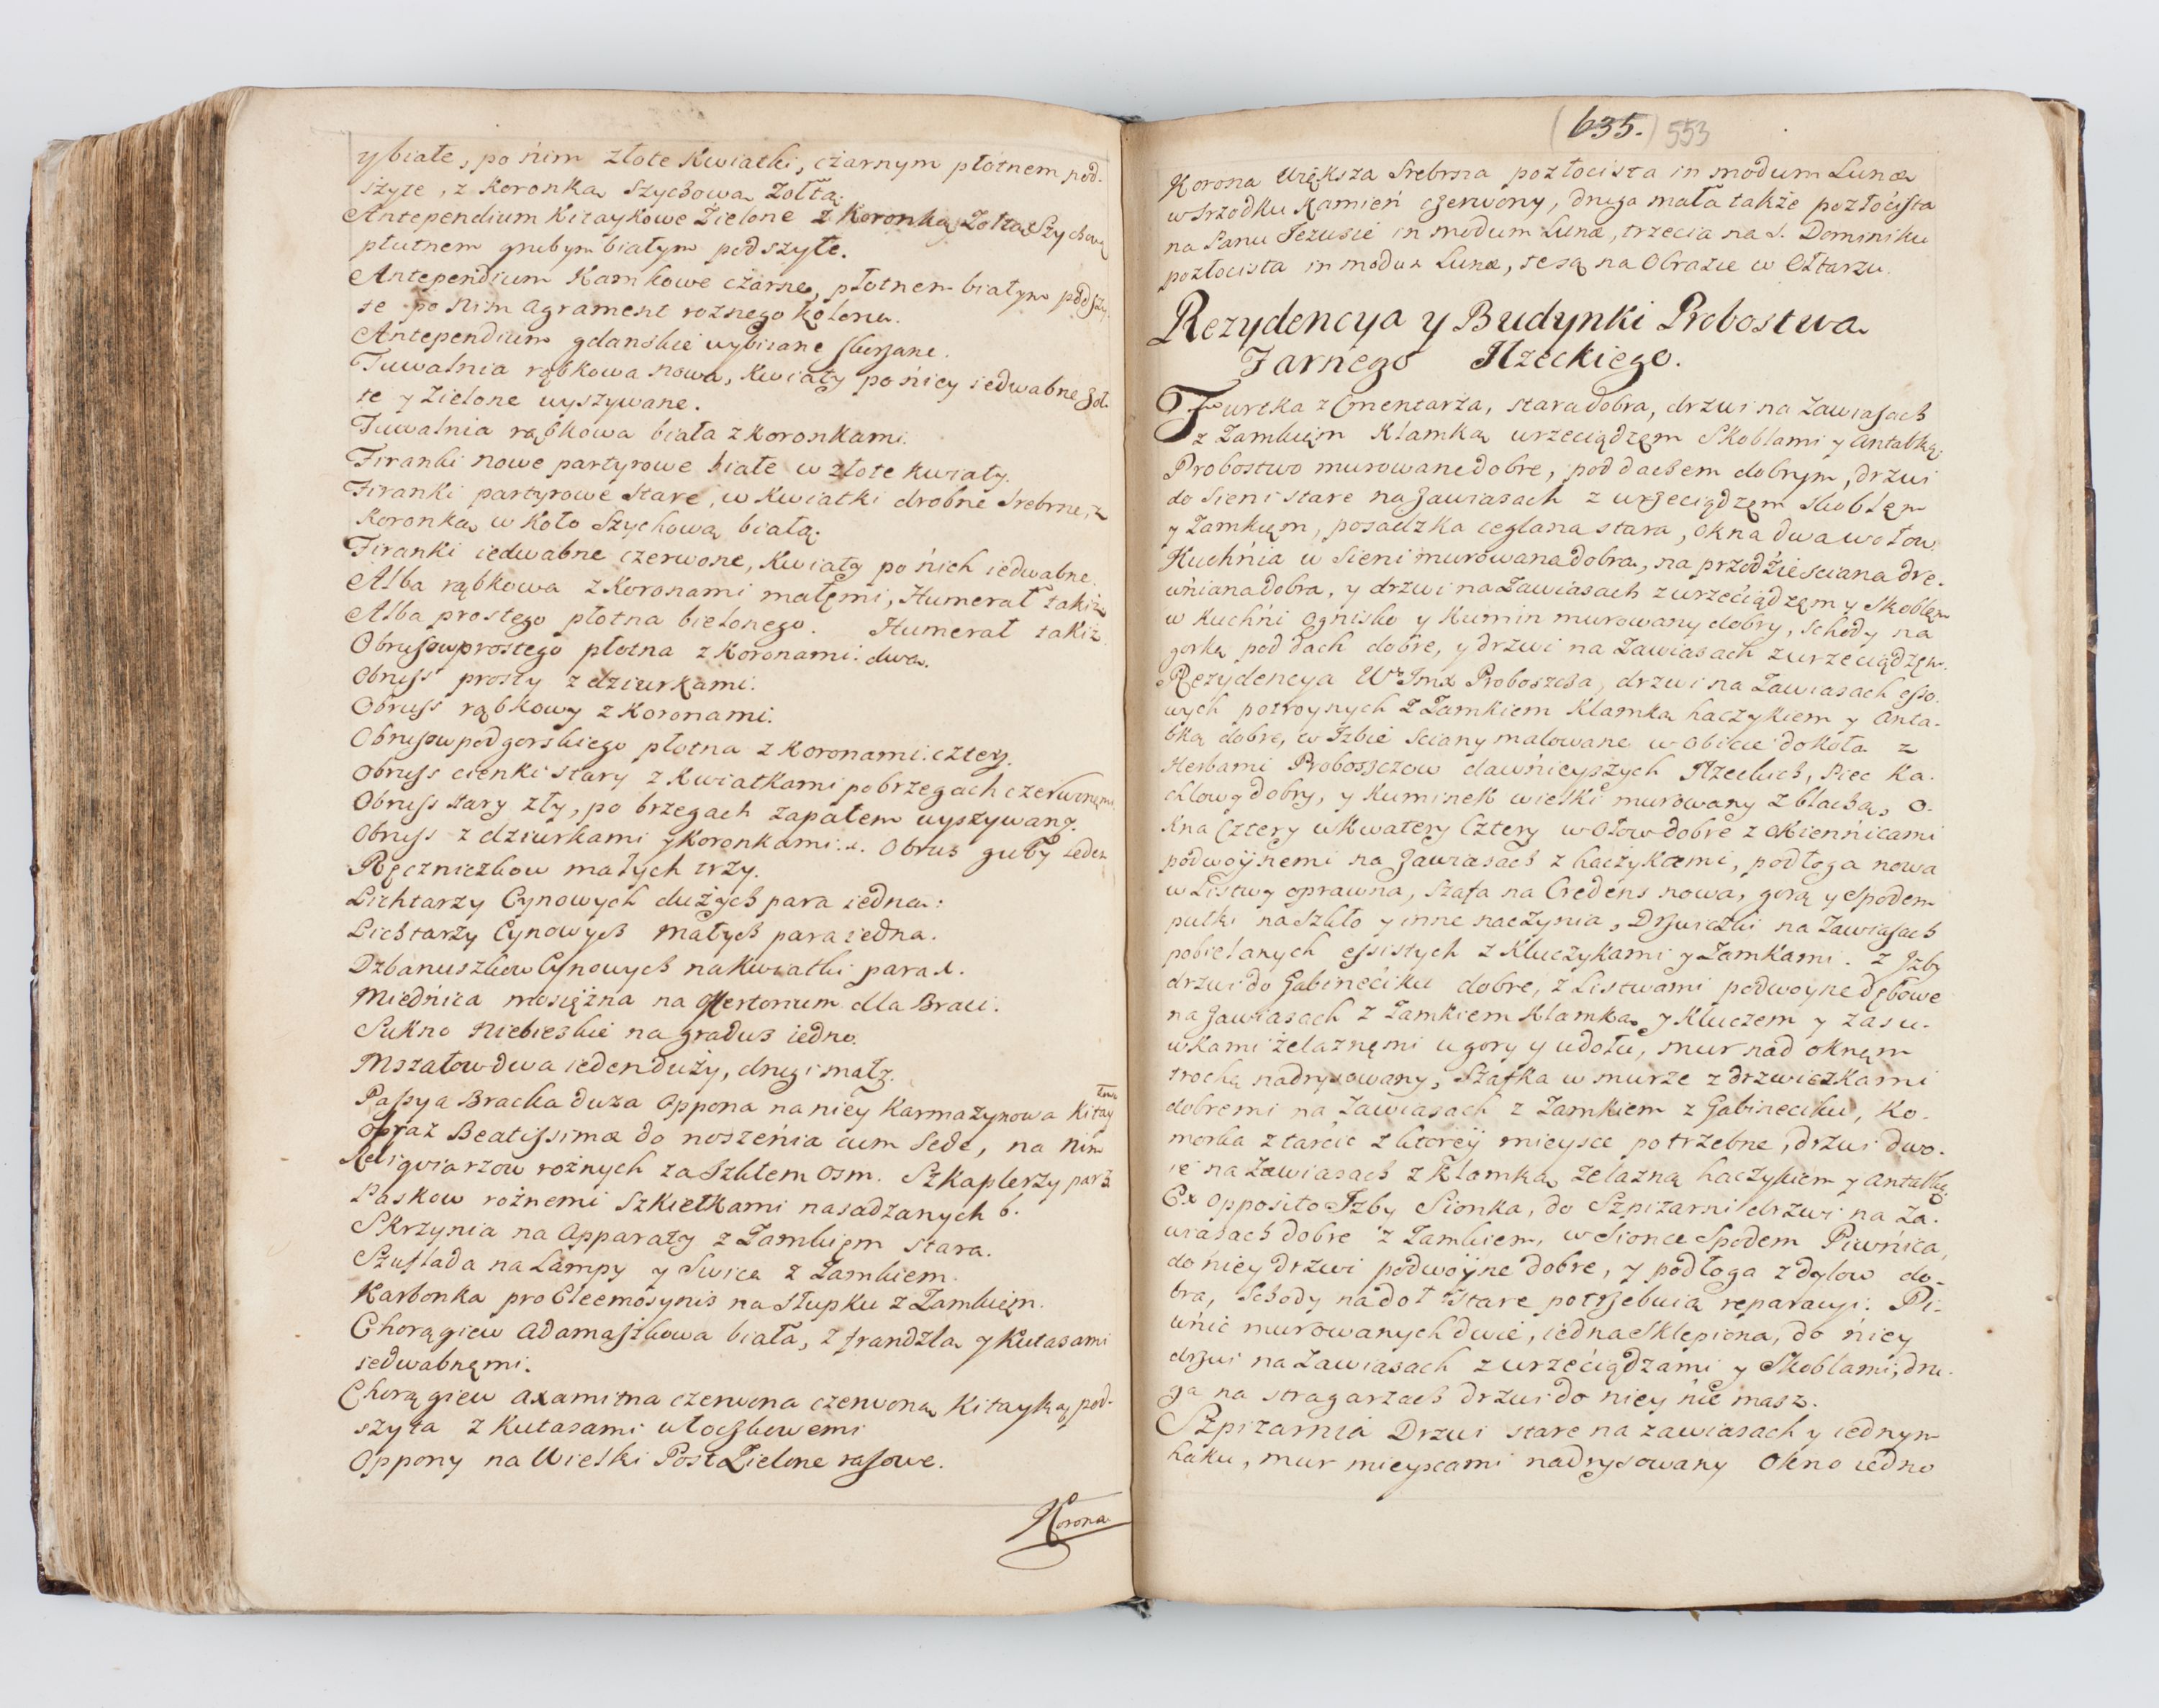 y białe, po nim złote Kwiatki, czarnym płotnem pod-
szyte, z Koronką Szychową Zołtą.
Antependium Kitaykowe Zielone z Koronką Zołtą Szychową
płutnem grubym białym podszyte.
Antependium Kamkowe czarne, płotnem białym podszy-
te po nim agrament roznego Koloru.
Antependium gdanskie wybiiane
Tuwalnia rąbkowa nowa, Kwiaty po niey iedwabne żoł-
te y Zielone wyszywane.
Tuwalnia rąbkowa biała z Koronkami.
Firanki nowe partyrowe białe w złote kwiaty.
Firanki partyrowe stare, w Kwiatki drobne Srebrne, z
Koronką w Koło Szychową białą.
Firanki iedwabne czerwone, Kwiaty po nich iedwabne.
Alba rąbkowa z Koronami małęmi, Humerał takiż
Alba prostego płotna bielonego. Humerał takiż
Obrusow prostego płotna z Koronami: dwa.
Obruss prosty z dziurkami.
Obruss rąbkowy z Koronami.
Obrusow podgorskiego płotna z Koronami: cztery.
Obruss cienki stary z Kwiatkami po brzegach czerwonęmi
Obruss stary zły, po brzegach zapałem wyszywany.
Obruss z dziurkami y Koronkami: 1. Obrus guby ieden
Ręczniczkow małych trzy.
Lichtarzy Cynowych dużych para iedna:
Lichtarzy Cynowych małych para iedna.
Dzbanuszkow Cynowych na Kwiatki para 1.
Miednica mosiężna na offertorium dla Braci.
Sukno Niebieskie na gradus iedno.
Mszałow dwa ieden duży, drugi mały.
Passya Bracka duża Oppona na niey Karmazynowa Kitay
kowa
Obraz Beatissimæ do noszenia cum Sede, na nim
Religwiarzow rożnych za Szkłem Osm. Szkaplerzy par 3
Paskow rożnemi Szkiełkami nasadzanych 6.
Skrzynia na Apparaty z Zamkięm stara.
Szuflada na Lampy y Swice z Zamkiem.
Karbonka pro Eleemosynis na Słupku z Zamkięm.
Chorągiew Adamaszkowa biała, z frandzlą y Kutasami
iedwabnęmi.
Chorągiew axamitna czerwona czerwoną Kitayką pod-
szyta z Kutasami włoczkowemi
Oppony na Wielki Post Zielone rasowe.
Korona
(635.) 553
Korona Większa Srebrna pozłocista in modum Lunæ
w Srzodku Kamień czerwony, druga mała także pozłocista
na Panu Jezusie in modum Lunæ, trzecia na S. Dominiku
pozłocista in modum Lunæ, te są na Obrazie w Ołtarzu.
Rezydencya y Budynki Probostwa
Farnego Iłzeckiego.
Furtka z Cmentarża, stara dobra, drzwi na Zawiasach
z Zamkięm Klamką wrzeciądzęm Skoblami y Antabką.
Probostwo murowane dobre, pod dachem dobrym, drzwi
do Sieni stare na zawiasach z wrzeciądzęm Skoblęm
y Zamkięm, posadzka ceglana stara, Okna dwa w ołow.
Kuchnia w Sieni murowana dobra, na przodzie sciana dre-
wniana dobra, y drzwi na Zawiasach z wrzeciądzęm y Skoblęm
w Kuchni Ognisko y Kumin murowany dobry, Schody na
gorkę pod dach dobre, y drzwi na Zawiasach z wrzeciądzęm.
Rezydencya Wo Jmć Proboszcza, drzwi na Zawiasach esso-
wych potroynych z Zamkiem Klamką haczykiem y Anta-
bką dobre, w Izbie Sciany malowane w obicie dokoła z
Herbami Proboszczow dawnieyszych Iłzeckich, Piec Ka-
chlowy dobry, y Kuminek wielki murowany z blachą, O-
kna Cztery w Kwatery Cztery w Ołow dobre z Okiennicami
podwoynemi na zawiasach z haczykami, podłoga nowa
w Listwy oprawna, Szafa na Credens nowa, gorą y Spodem
pułki na Szkło y inne naczynia, Drzwiczki na Zawiasach
pobielanych essistych z Kluczykami y Zamkami. z Izby
drzwi do Gabineciku dobre, z Listwami podwoyne dębowe
na zawiasach z Zamkiem Klamką y Kluczem y zasu-
wkami żelaznęmi u gory y u dołu, mur nad oknęm
trochą nadrysowany, Szafka w murze z drzwiczkami
dobremi na Zawiasach z Zamkiem z Gabineciku, Ko-
morka z tarcic z ktorey mieysce potrzebne, drzwi dwo-
ie na Zawiasach z Klamką żelazną haczykiem y Antabką.
Ex opposito Izby Sionka, do Szpizarni drzwi na Za-
wiasach dobre z Zamkiem, w Sionce Spodem Piwnica,
do niey drzwi podwoyne dobre, y podłoga z dylow do-
bra, Schody na doł stare potrzebuią reparacyi. Pi-
wnic murowanych dwie, iedna Sklepiona, do niey
drzwi na Zawiasach z wrzeciądzami y Skoblami, dru-
ga na stragarzach drzwi do niey nie masz.
Szpizarnia Drzwi stare na zawiasach y iednym
haku, mur mieyscami nadrysowany Okno iedno